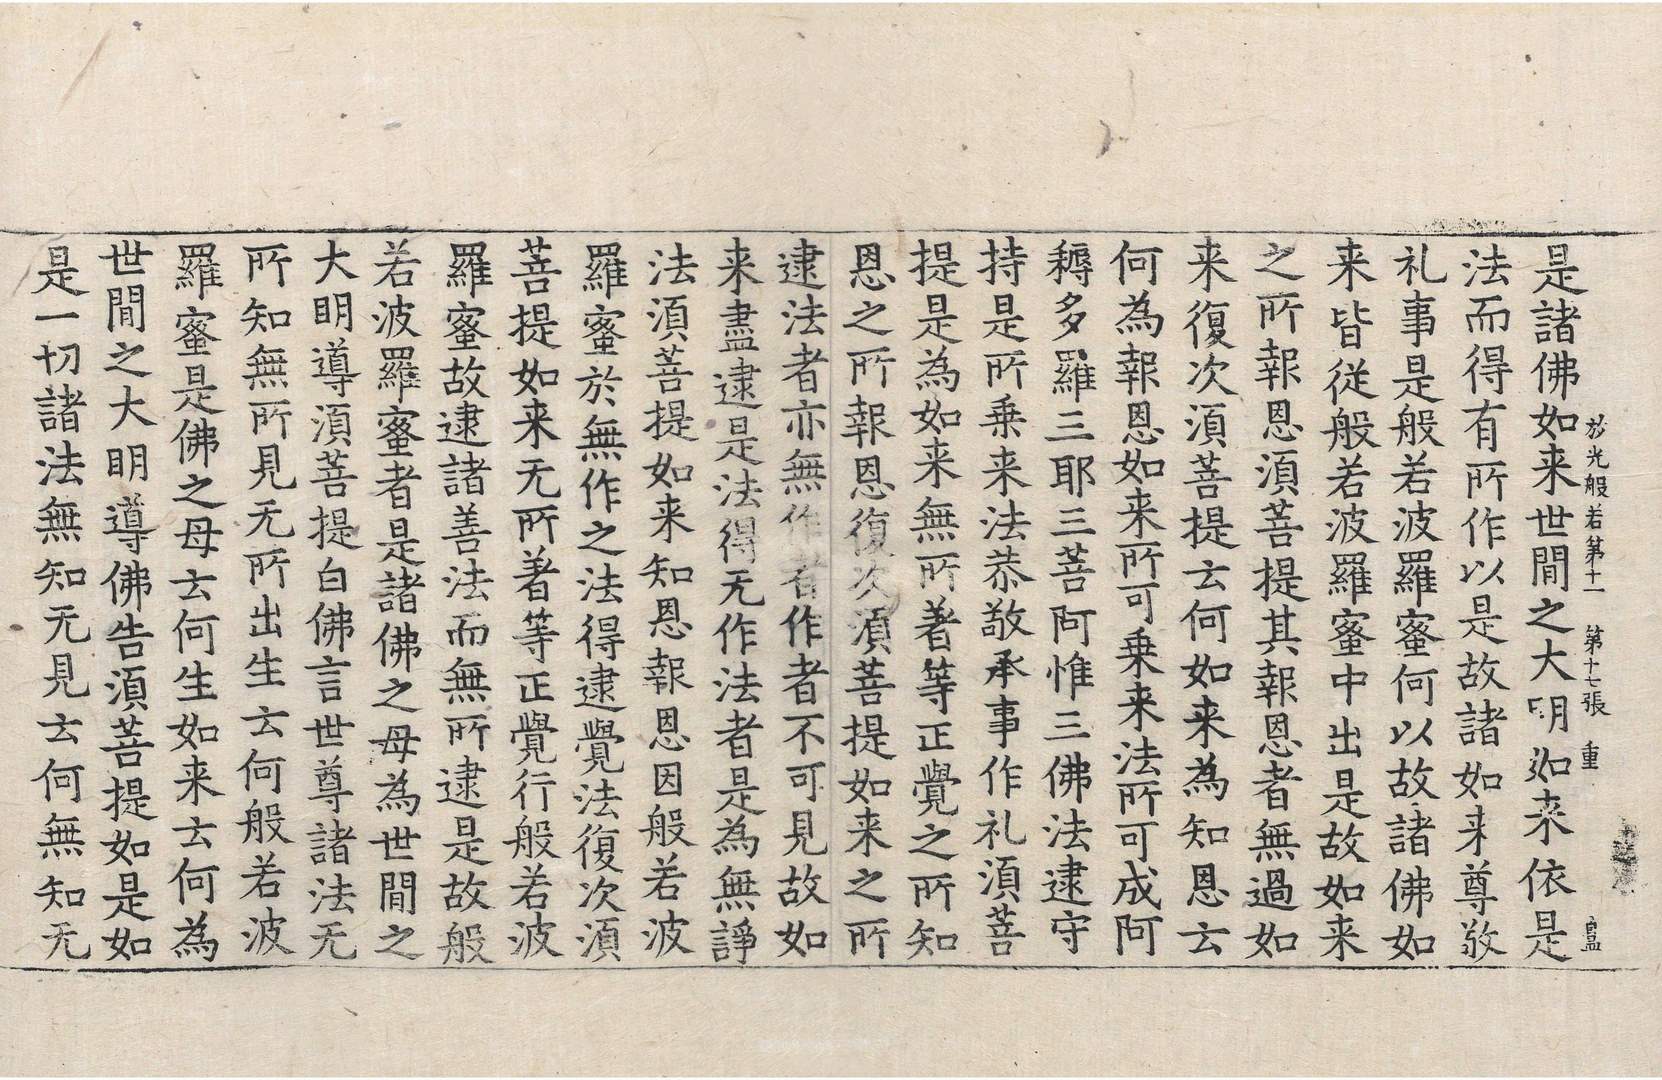 於光般若第十一　第十七張　重　皿
是諸佛如来世閒之大明如来依是
法而得有所作以是故諸如来尊敬
礼事是般若波羅蜜何以故諸佛如
来皆從般若波羅蜜中出是故如来
之所報恩須菩提其報恩者無過如
来復次須菩提云何如来為知恩云
何為報恩如来所可乗来法所可成阿
耨多羅三耶三菩阿惟三佛法逮守
持是所乗来法恭敬承事作礼須菩
提是為如来無所著等正覺之所知
恩之所報恩復次須菩提如来之所
逮法者亦無作者作者不可見故如
来盡逮是法得无作法者是為無諍
法須菩提如来知恩報恩因般若波
羅蜜於無作之法得逮覺法復次須
菩提如来无所著等正覺行般若波
羅蜜故逮諸善法而無所逮是故般
若波羅蜜者是諸佛之母為世閒之
大明導須菩提白佛言世尊諸法无
所知無所見无所出生云何般若波
羅蜜是佛之母云何生如来云何為
世閒之大明導佛告須菩提如是如
是一切諸法無知无見云何無知无